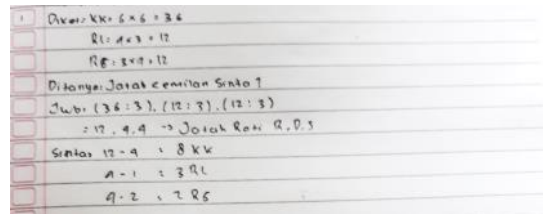 1 Diket: KK = 6 x 6 = 36
RL = 4 x 3 = 12
RG = 3 x 4 = 12
Ditanya: Jatah cemilan Sinta?
Jwb: (36 : 3), (12 : 3), (12 : 3)
= 12, 4, 4 -> Jatah Rani R, D, S
Sinta = 12 - 4 = 8 KK
4 - 1 = 3 RL
4 - 2 = 2 RG